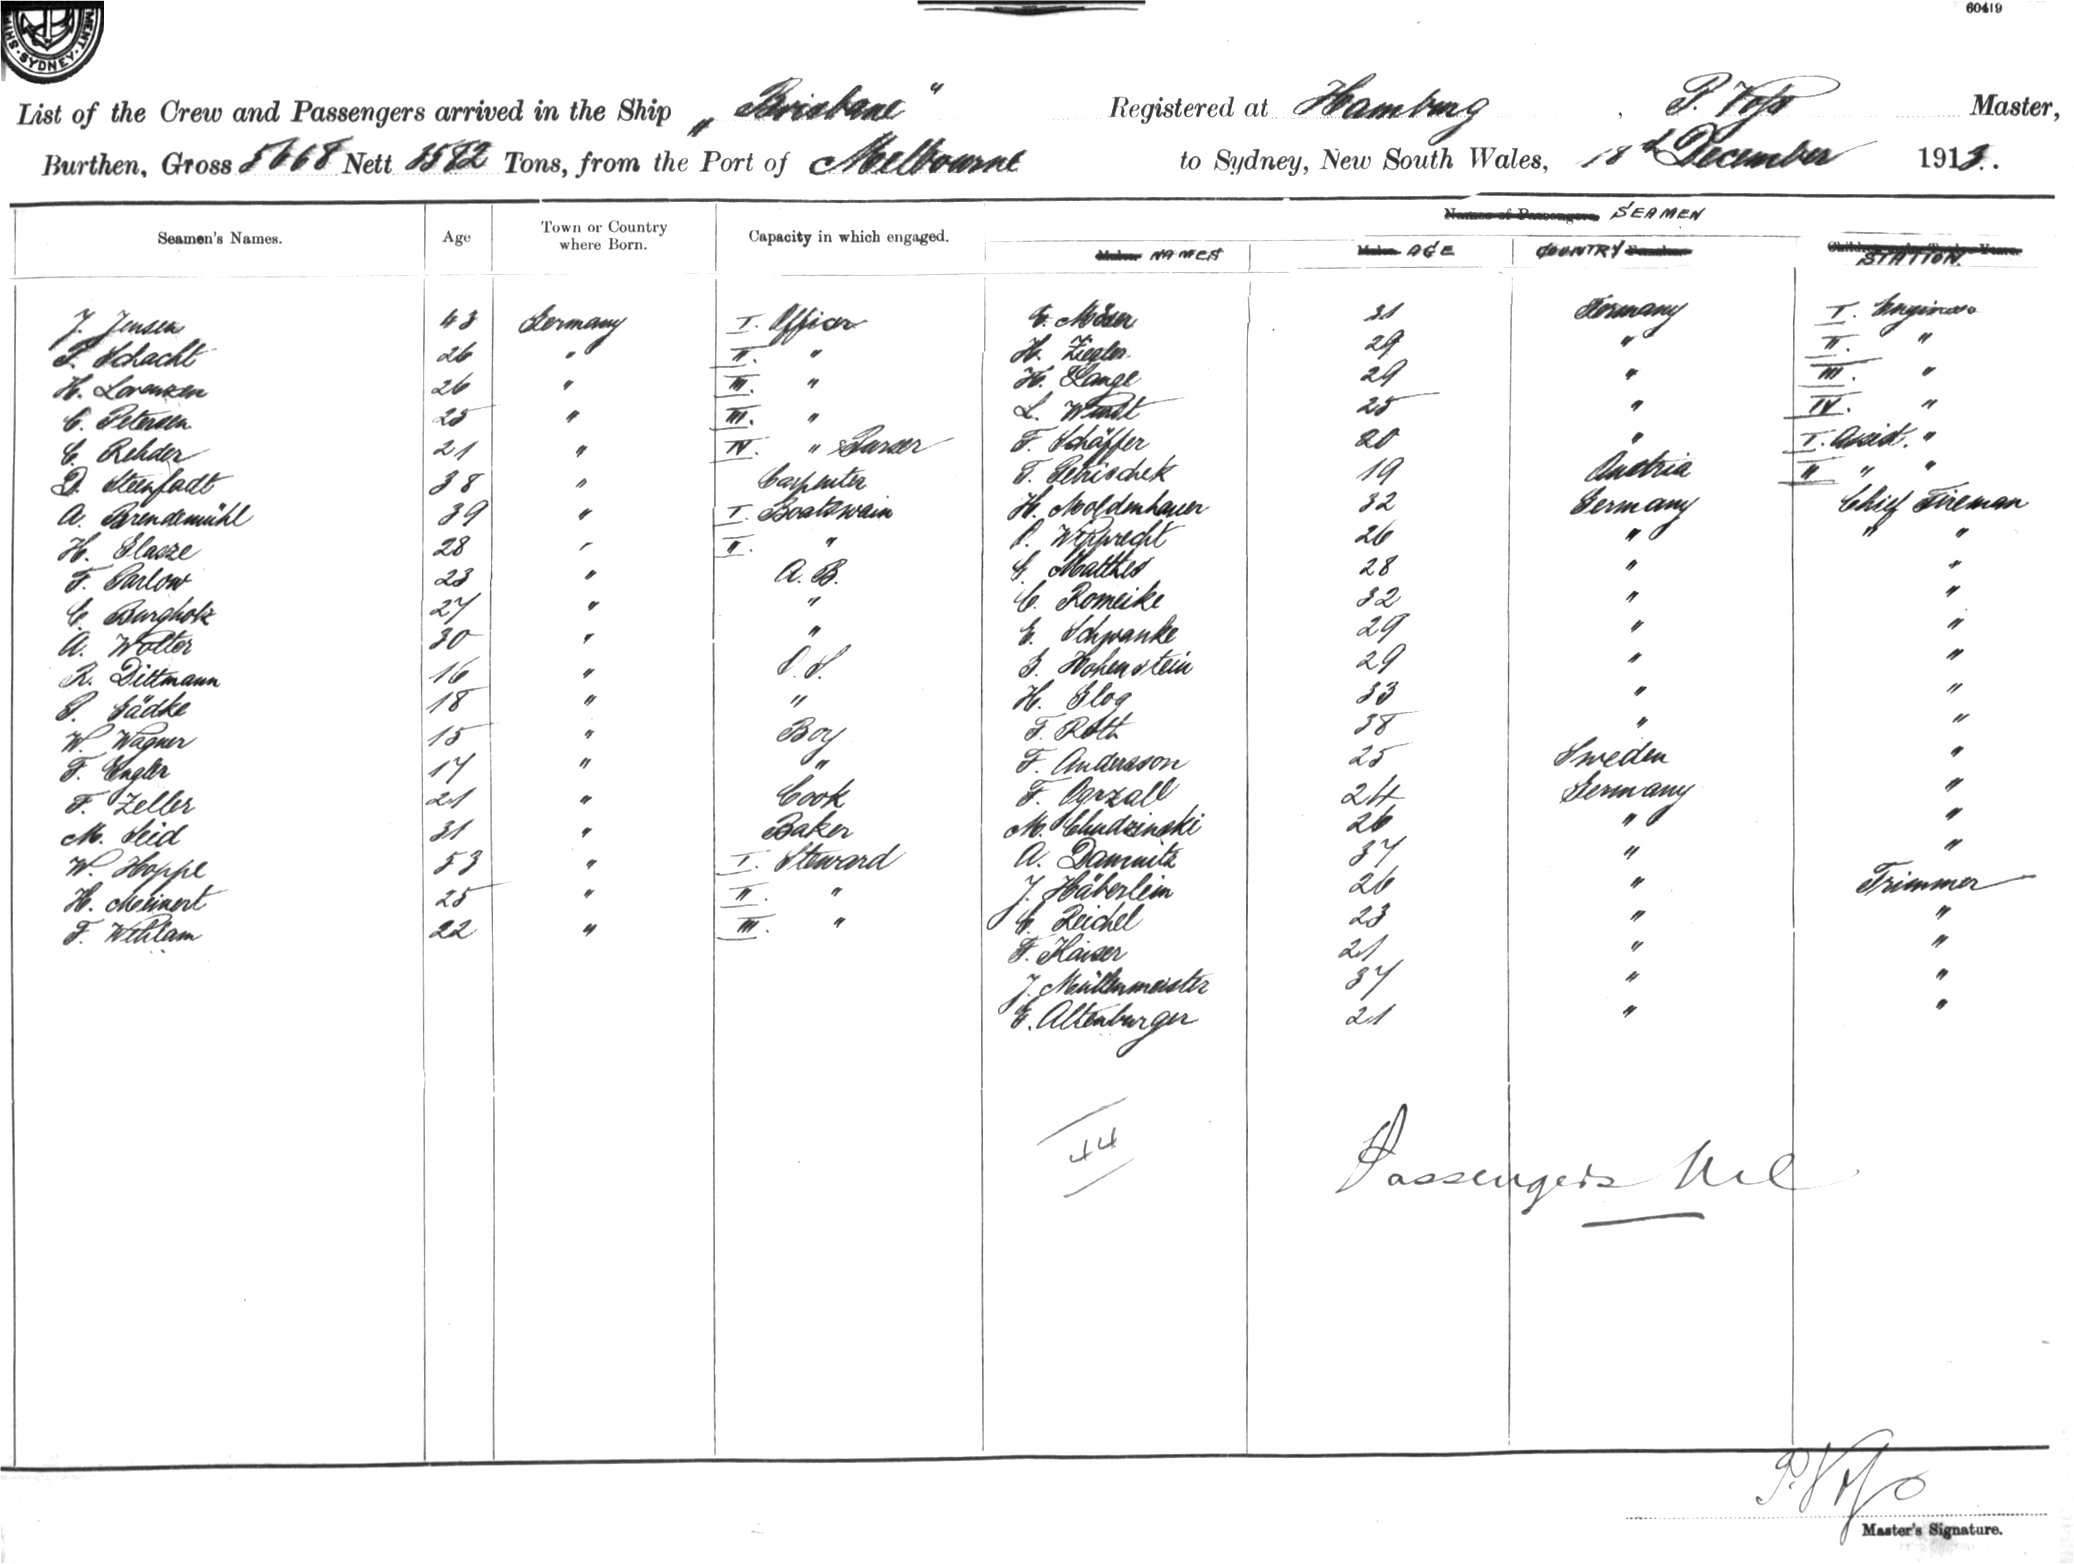 60419
MENT
SYDNEY
List of the Crew and Passengers arrived in the Ship „ Brisbane " Registered at Hamburg , P. Voss Master,
Burthen, Gross 5668 Nett 3582 Tons, from the Port of Melbourne to Sydney, New South Wales, 18th December 1913.
Names of Passengers. SEAMEN
Seamen's Names. Age Town or Country where Born. Capacity in which engaged. NAMES AGE COUNTRY STATION
J. Jensen 43 Germany I. Officer E. Möser 31 Germany I. Engineer
P. Schacht 26 " II. " H. Ziegler 29 " II. "
H. Lorenzen 26 " III. " H. Lange 29 " III. "
C. Petersen 25 " III. " L. Wundt 25 " IV. "
C. Rehder 21 " IV. " Purser F. Schäffer 20 " I. Assist. "
D. Steenfadt 38 " Carpenter F. Petrischek 19 Austria II " "
A. Brendemühl 39 " I. Boatswain H. Moldenhauer 32 Germany Chief Fireman
H. Glaeze 28 " II. " Wipprecht 26 " " "
F. Parlow 23 " A. B. Matthes 28 " "
C. Burgholz 27 " " C. Romeike 32 " "
A. Wolter 30 " " E. Schwanke 29 " "
R. Dittmann 16 " O. S. G. Hohenstein 29 " "
P. Gädke 18 " " H. Glog 33 " "
W. Wagner 15 " Boy F. Roth 38 " "
F. Engler 17 " " F. Andersson 25 Sweden "
F. Zeller 21 " Cook F. Ogrzall 24 Germany "
M. Seid 31 " Baker M. Chudzinski 26 " "
W. Hoppe 53 " I. Steward A. Damnitz 37 " "
H. Meinert 25 " II. " J. Häberlein 26 " Trimmer
F. Wehlam 22 " III. " C. Reichel 23 " "
F. Kaiser 21 " "
J. Müllenmeister 37 " "
E. Altenburger 21 " "
44
Passengers Nil
P. Voss
Master's Signature.